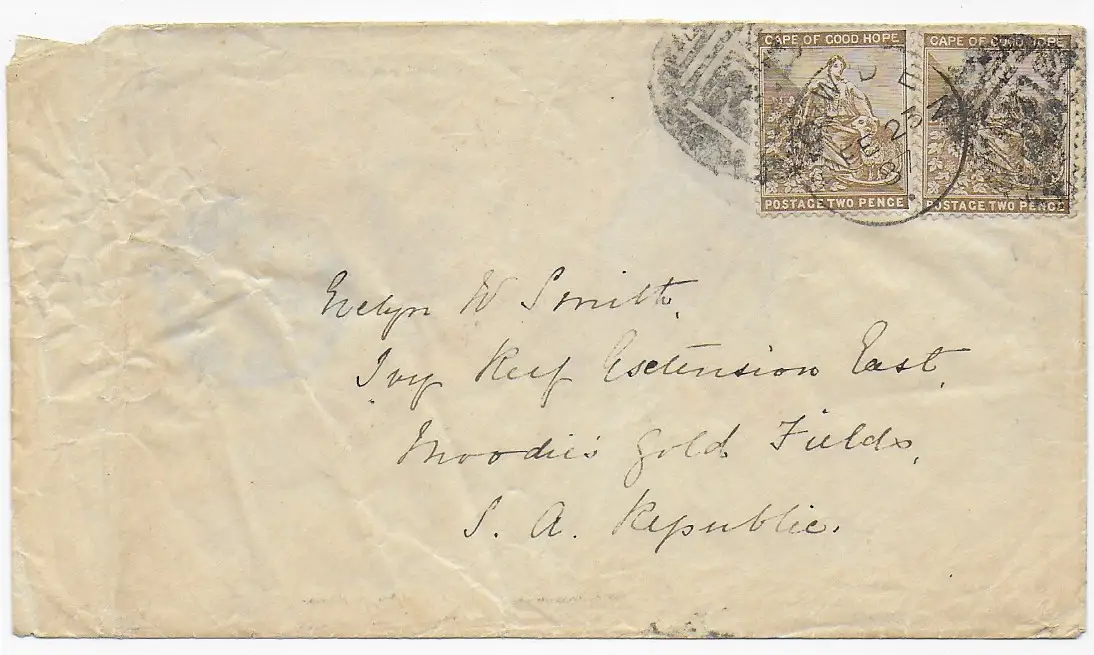 CAPE OF GOOD HOPE CAPE OF GOOD HOPE
FE 23
POSTAGE TWO PENCE POSTAGE TWO PENCE
Evelyn W Smith,
Ivy Reef Extension East,
Moodie's Gold Fields,
S. A. Republic.